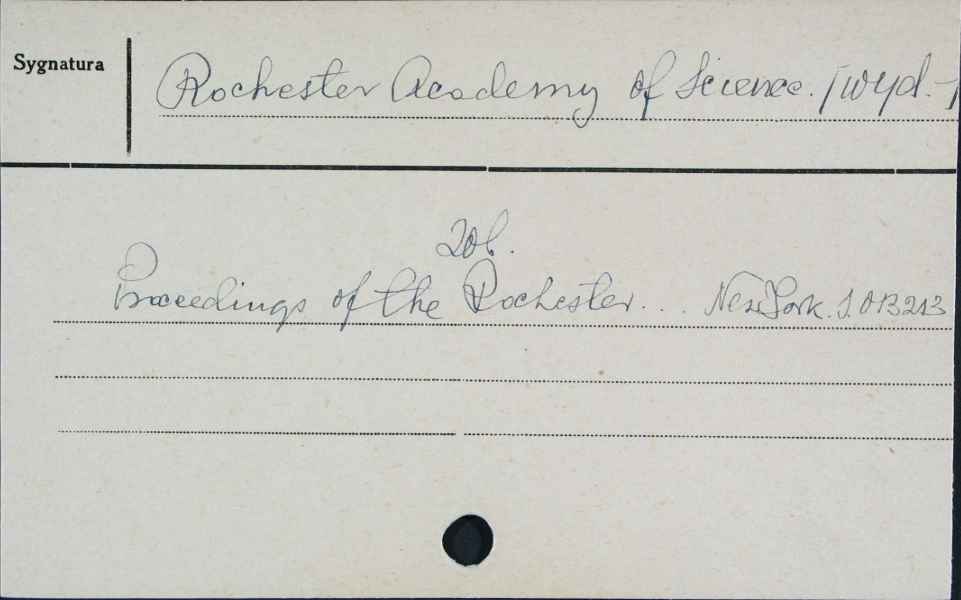 Sygnatura
Rochester Academy of Science. [wyd.-]
Zob.
Proceedings of the Rochester... New York. J.013213